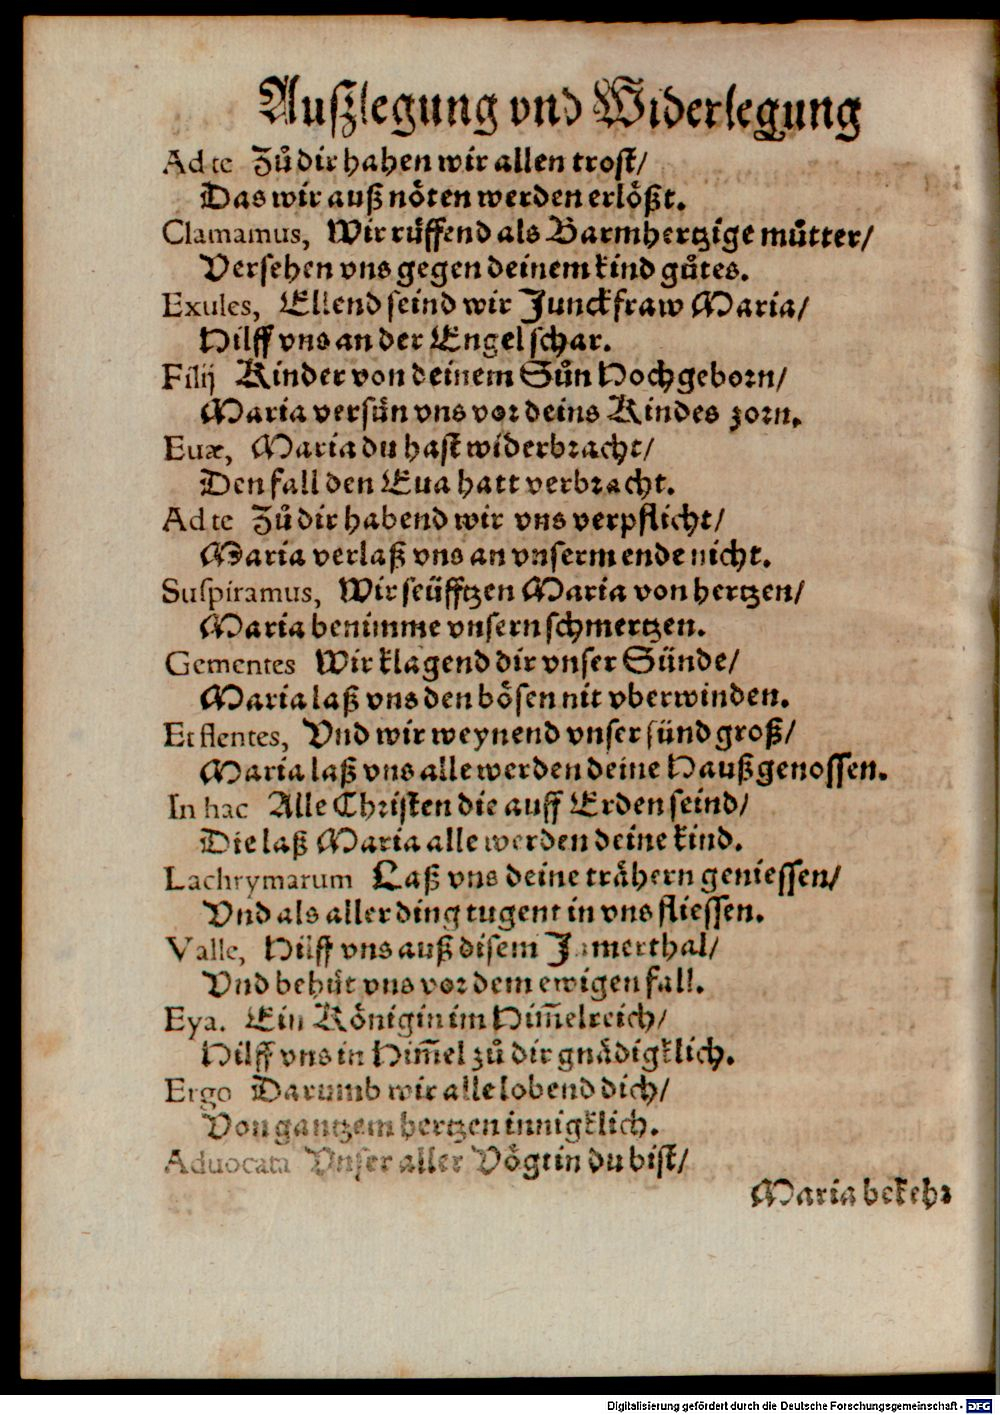 Außzlegung vnd Widerlegung
Ad te Zů dir hahen wir allen trost/
Das wir auß nöten werden erlößt.
Clamamus, Wir rüffend als Barmhertzige můtter/
Versehen vns gegen deinem kind gůtes.
Exules, Ellend seind wir Junckfraw Maria/
Hilff vns an der Engel schar.
Filij Kinder von deinem Sůn Hochgeborn/
Maria versün vns vor deins Kindes zorn.
Euæ, Maria du hast widerbracht/
Den fall den Eua hatt verbracht.
Ad te Zů dir habend wir vns verpflicht/
Maria verlaß vns an vnserm ende nicht.
Suspiramus, Wir seüfftzen Maria von hertzen/
Maria benimme vnsern schmertzen.
Gementes Wir klagend dir vnser Sünde/
Maria laß vns den bösen nit vberwinden.
Et flentes, Vnd wir weynend vnser sünd groß/
Maria laß vns alle werden deine Haußgenossen.
In hac Alle Christen die auff Erden seind/
Die laß Maria alle werden deine kind.
Lachrymarum Laß vns deine trähern geniessen/
Vnd als aller ding tugent in vns fliessen.
Valle, Hilff vns auß disem Jamerthal/
Vnd behüt vns vor dem ewigen fall.
Eya. Ein Königin im Him̃elreich/
Hilff vns in Him̃el zů dir gnädigklich.
Ergo Darumb wir alle lobend dich/
Von gantzem hertzen innigklich.
Aduocata Vnser aller Vögtin du bist/
Maria bekehr
Digitalisierung gefördert durch die Deutsche Forschungsgemeinschaft - DFG